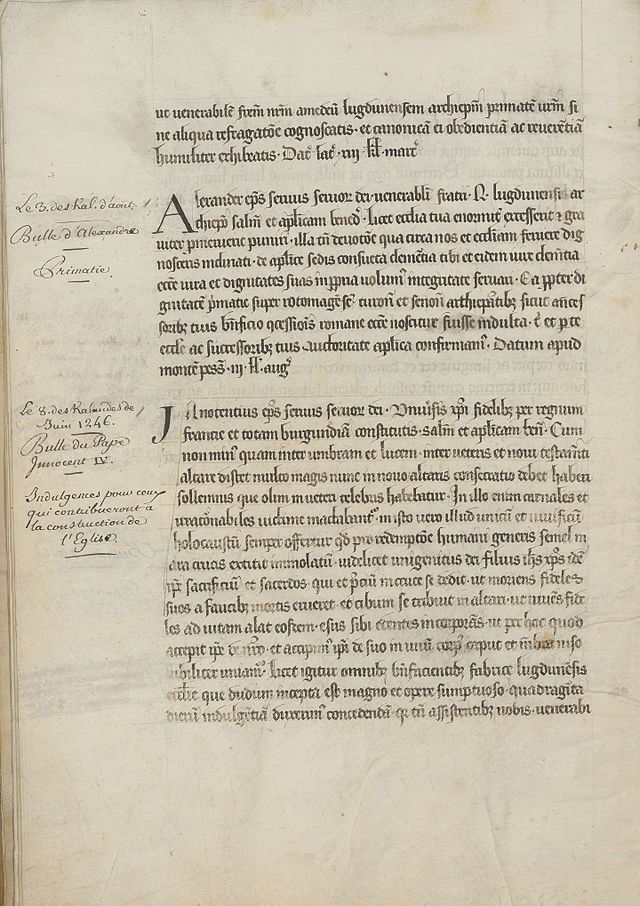 ut venerabilē frēm nrm̄ amedeū lugdunensem archiepm̄ primatē vrm̄ si
ne aliqua refragatōe cognoscatis · et canonicā ei obedientiā ac reuerētiā
humiliter exhibeatis · Dat̄ lat̄ · xiij kł · marc̄
Le 3. des Kal. d'aout.
Bulle d'Alexandre
Primatie.
Alexander ep̄s seruus seruor dei · venerabili fratri · lugdunensi ar
chiep̄o salm̄ et ap̄licam bened̄ · licet ecclīa tua enormit̄ excesserit et gra
uiter punir̄i · illa tn̄ deuotōne qua circa nos et eccliam feruere dig
nosceris inclinati · de ap̄lice sedis consueta clemētia tibi et eidem tue
ecc̄e iura et dignitates suas integritate seruari · Ea propter di
gnitatē prīmatie super rotomageñsē turoñ et senoñ archiepatibȝ sicut
soribȝ tuis romane ecc̄e noscitur fuisse indulta · et p te
ecclē ac successoribȝ tuis auctoritate ap̄lica confirmam̄ · Datum apud
montē pess̄ · iij · kł · auḡ
Le 8. des Kalendes de
Juin 1246.
Bulle du Pape
Innocent IV.
Indulgences pour ceux
qui contribueront à
la construction de
l'Eglise.
Innocentius ep̄s seruus seruor dei · Vniūsis xp̄i fidelibȝ per regnum
francie et totam burgundiam constitutis · salm̄ et ap̄licam ben̄ · Cum
non min̄ quam inter umbram et lucem · inter veteris et noui testam̄ti
altare distet multo magis nunc in nouo altaris consecratio debet haberi
sollemnis que olim in ueteri celebris habebatur · In illo enim carnales et
irracōnabiles uictime mactabant̄ · in isto vero illud unicū et uiuificū
holocaustū semper offertur qd̄ pro redemptōe humani generis semel in
ara crucis extitit immolatū · videlicet unigenitus dei filius ih̄s xp̄s idē
ip̄e sacrificiū et sacerdos · qui et p̄ciū in cruce se dedit · ut moriens fideles
suos a faucibȝ mortis erueret · et cibum se tribuit in altari · ut uiuēs fide
les ad vitam alat eosdem · esus sibi edentes incorporās · ut per hoc quod
accepit ip̄e de nr̄o · et accepim̄ ip̄i de suo in unū corp̄ caput et mēbra
uniam̄ · licet igitur omnibȝ bn̄facientibȝ fabrice lugdunēsis
ecclīe que dudum incepta est magno et opere sumptuoso · quadragīta
dierū indulgētiā duxerim̄ concedendā · tn̄ assistentibȝ uobis · venerabi